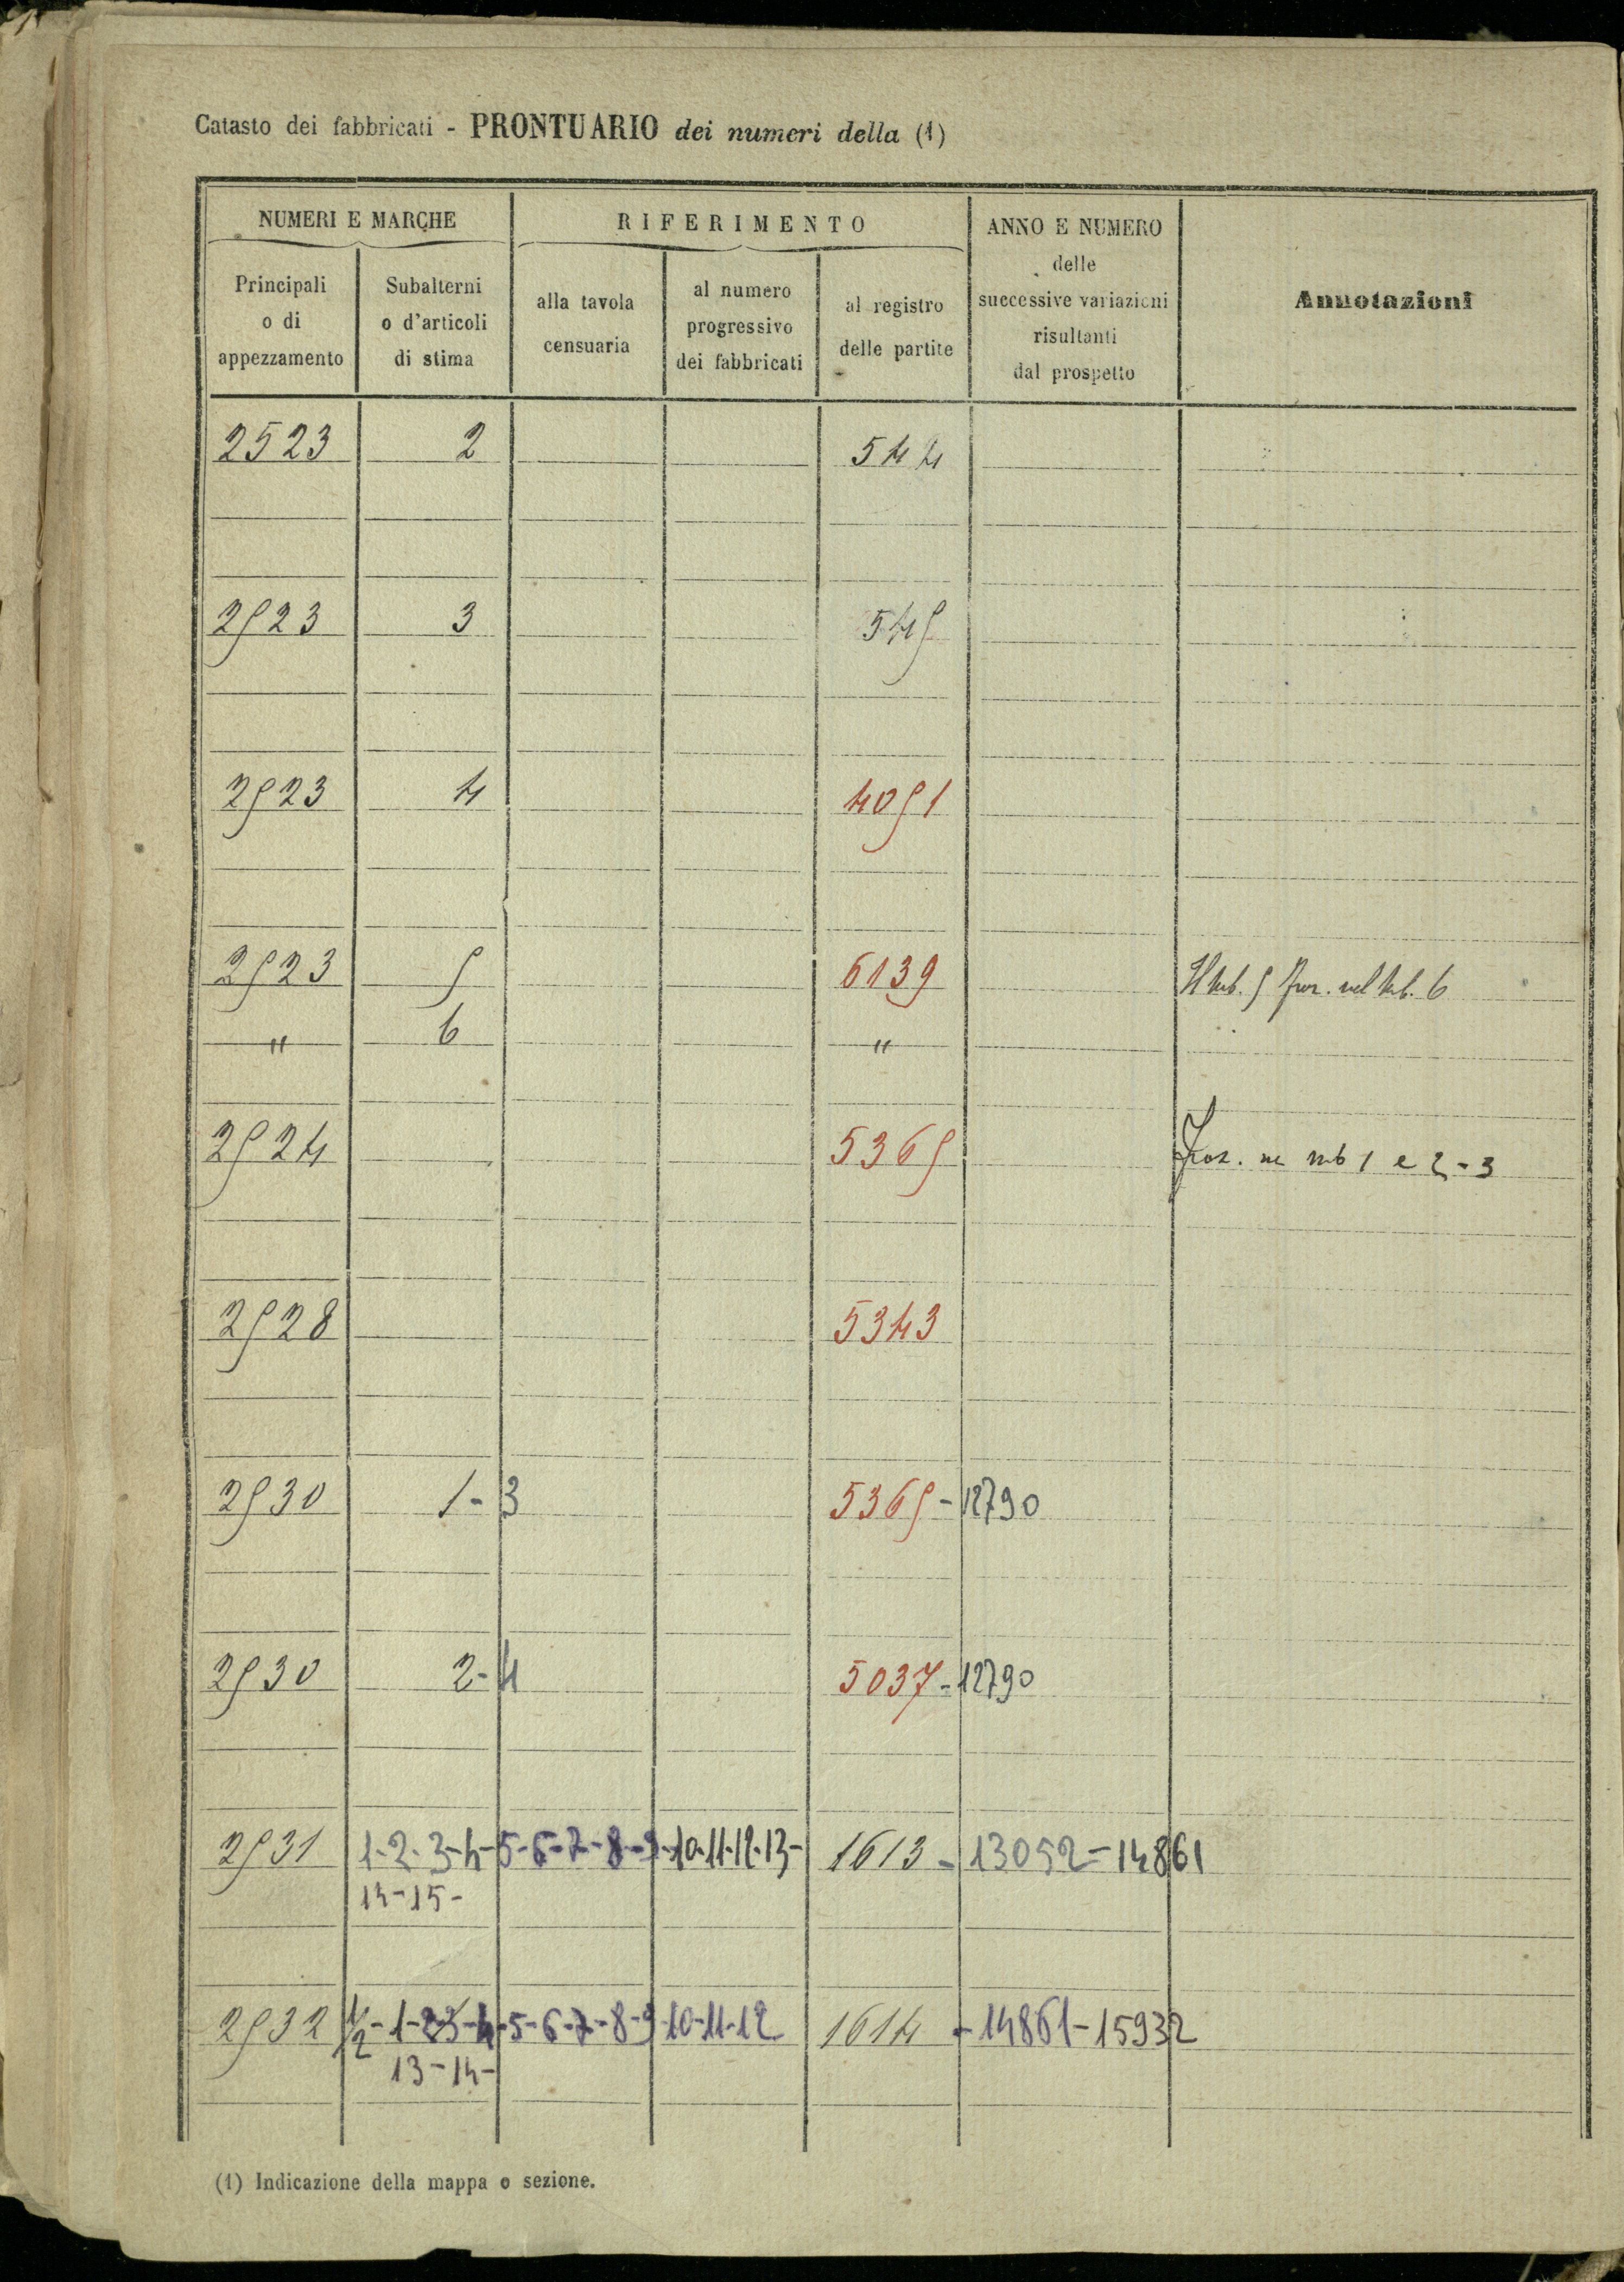 Catasto dei fabbricati - PRONTUARIO dei numeri della (1)
NUMERI E MARCHE
RIFERIMENTO
ANNO E NUMERO
delle
successive variazioni
risultanti
dal prospetto
Annotazioni
Principali
o di
appezzamento
Subalterni
o d'articoli
di stima
alla tavola
censuaria
al numero
progressivo
dei fabbricati
al registro
delle partite
2523 2 544
2523 3 545
2523 4 4051
2523 5 6139 Il sub. 5 fuz. nel sub. 6
" 6 "
2524 5365 fuz. ne sub 1 e 2-3
2528 5343
2530 1-3 5365-12790
2530 2-4 5037-12790
2531 1-2-3-4-5-6-7-8-9-10-11-12-13- 1613-13052-14861
14-15-
2532 1/2-1-2-3-4-5-6-7-8-9-10-11-12 1614-14861-15932
13-14-
(1) Indicazione della mappa o sezione.